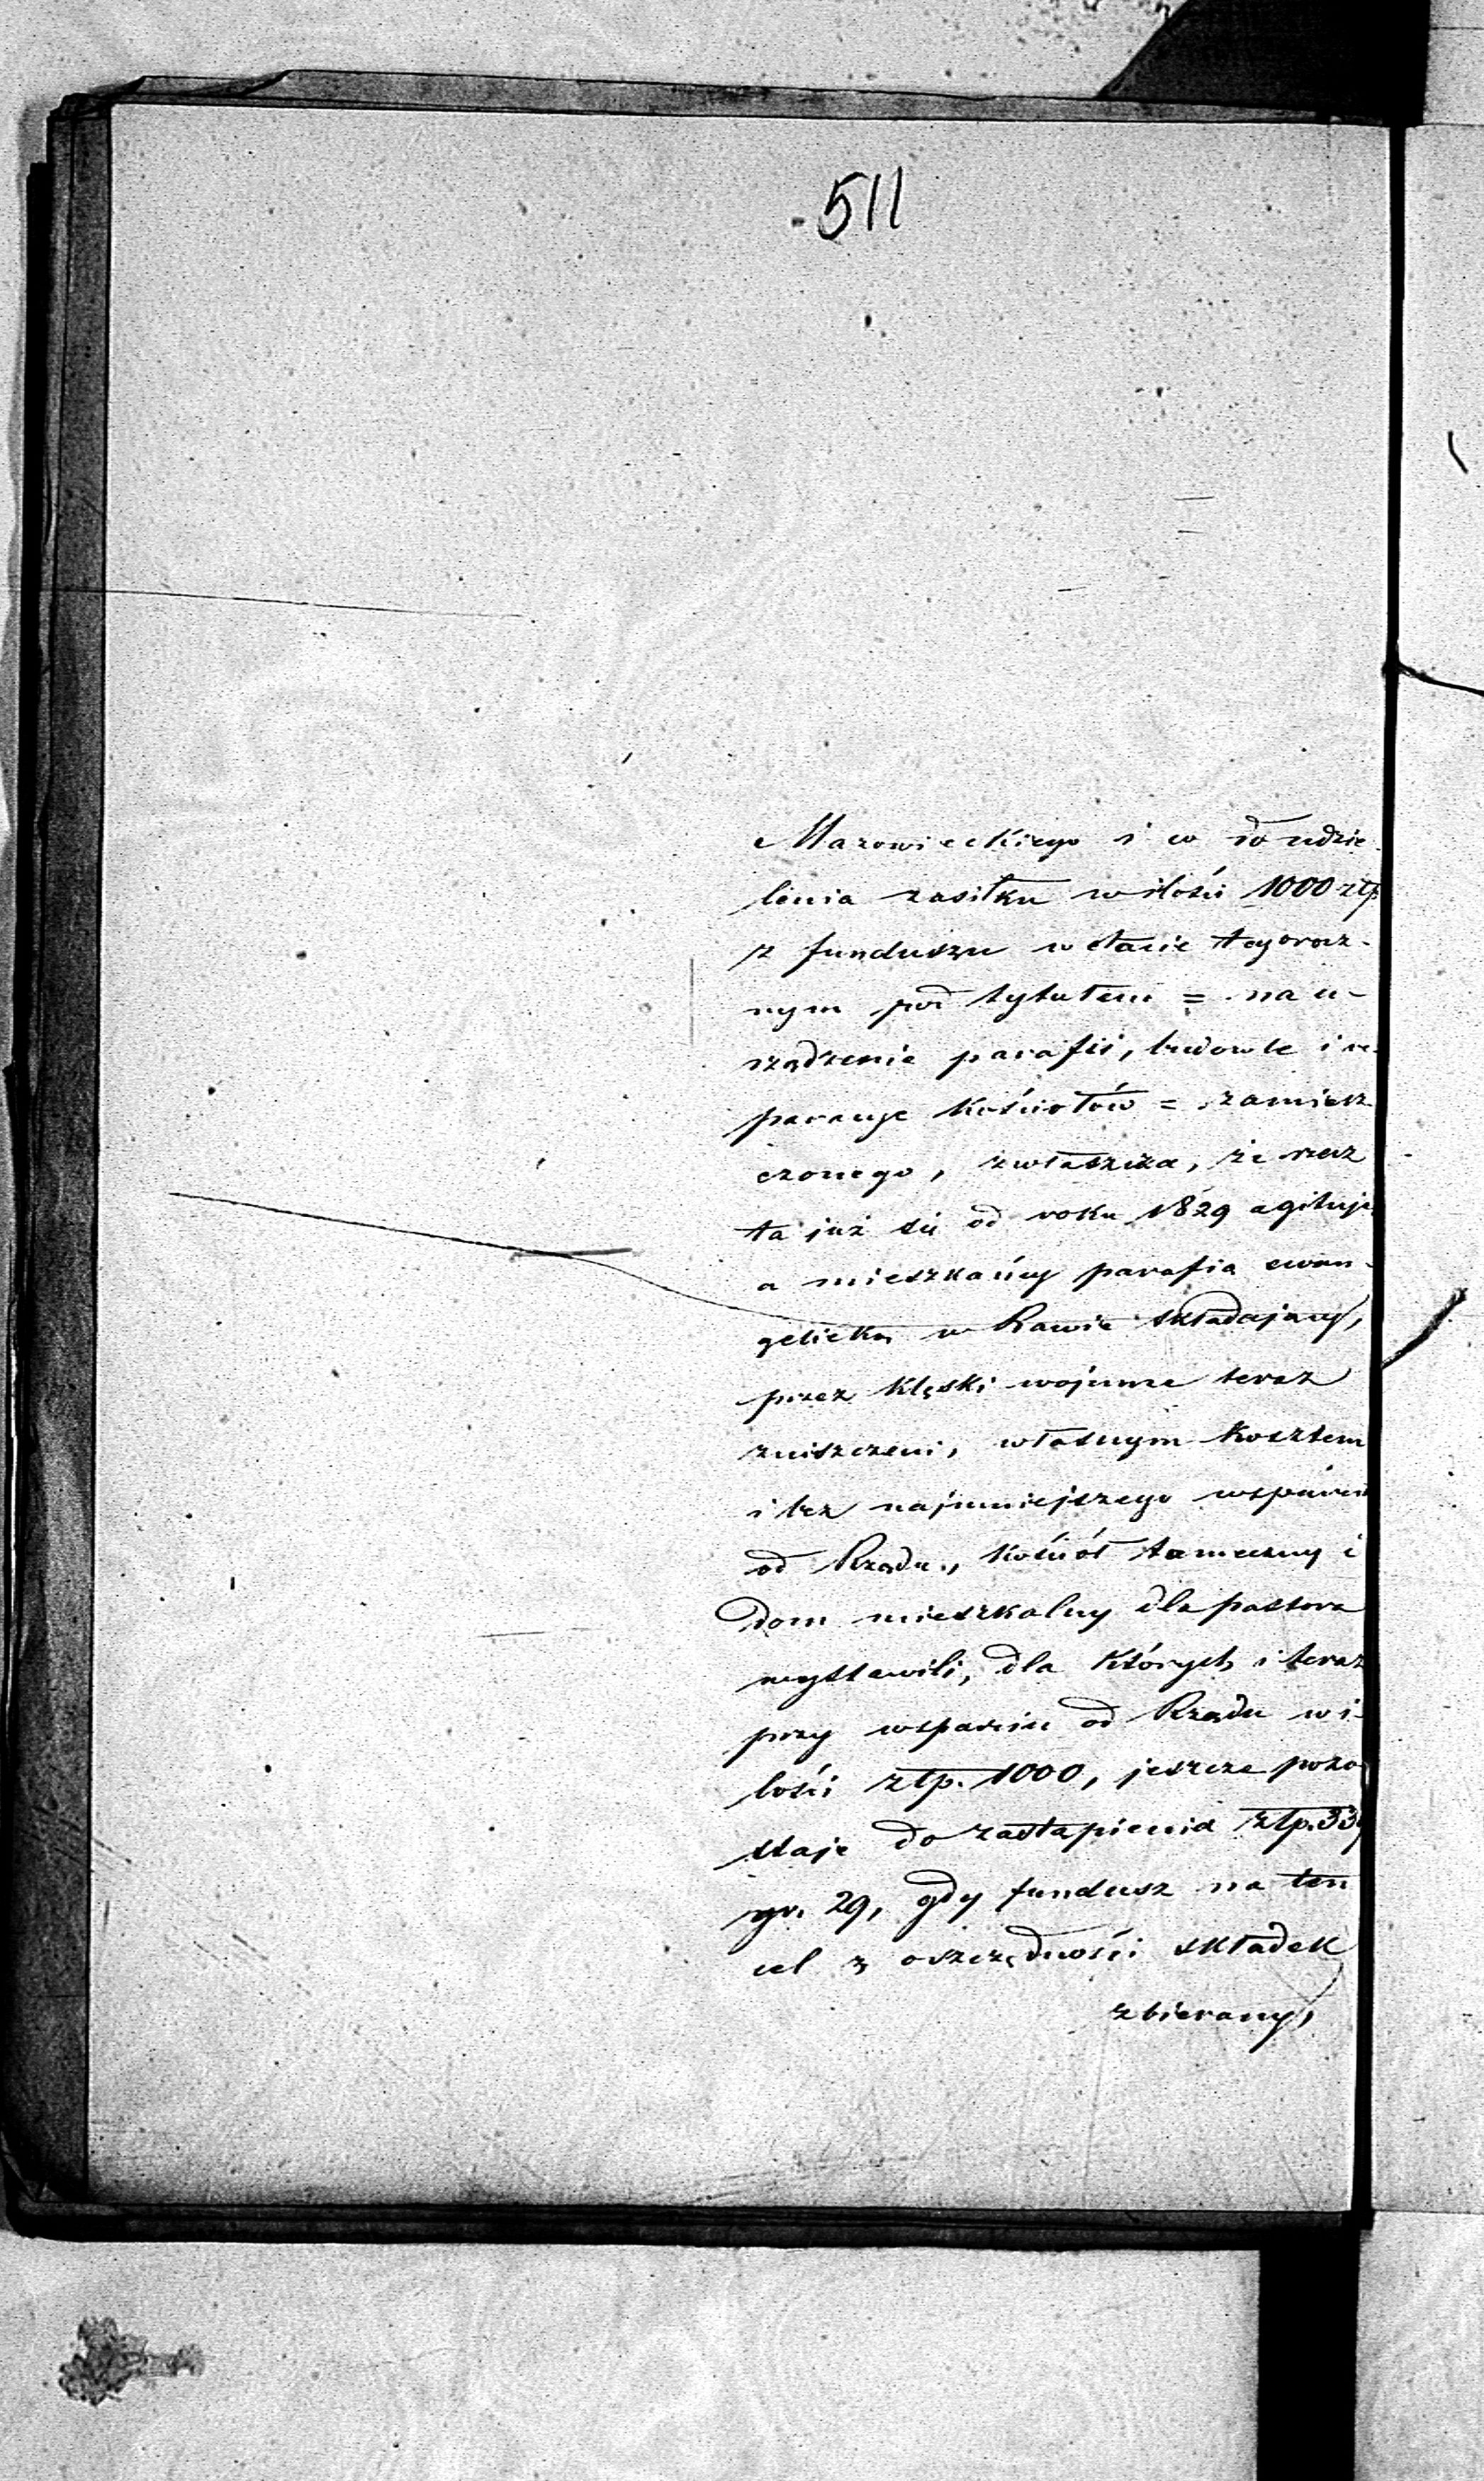 511
Mazowieckiego i w do udzie
lenia zasiłku w ilości 1000 złp
z funduszu w etacie tegorocz-
nym pod tytułem = na u-
rządzenie parafii, budowle i re-
paracye kościołów = zamiesz
czonego, zwłaszcza, że rzecz
ta już się od roku 1829 agituje
a mieszkańcy parafią ewan-
gelicką w Rawie składający,
przez klęski wojenne teraz
zniszczeni, własnym kosztem
i bez najmniejszego wsparcia
od Rządu, kościół tameczny i
dom mieszkalny dla pastora
wystawili, dla których i teraz
przy wsparciu od Rządu w i-
lości złp. 1000, jeszcze pozo
staje do zastąpienia złp.
gr. 29, gdy fundusz na ten
cel z oszczędności składek
zbierany,